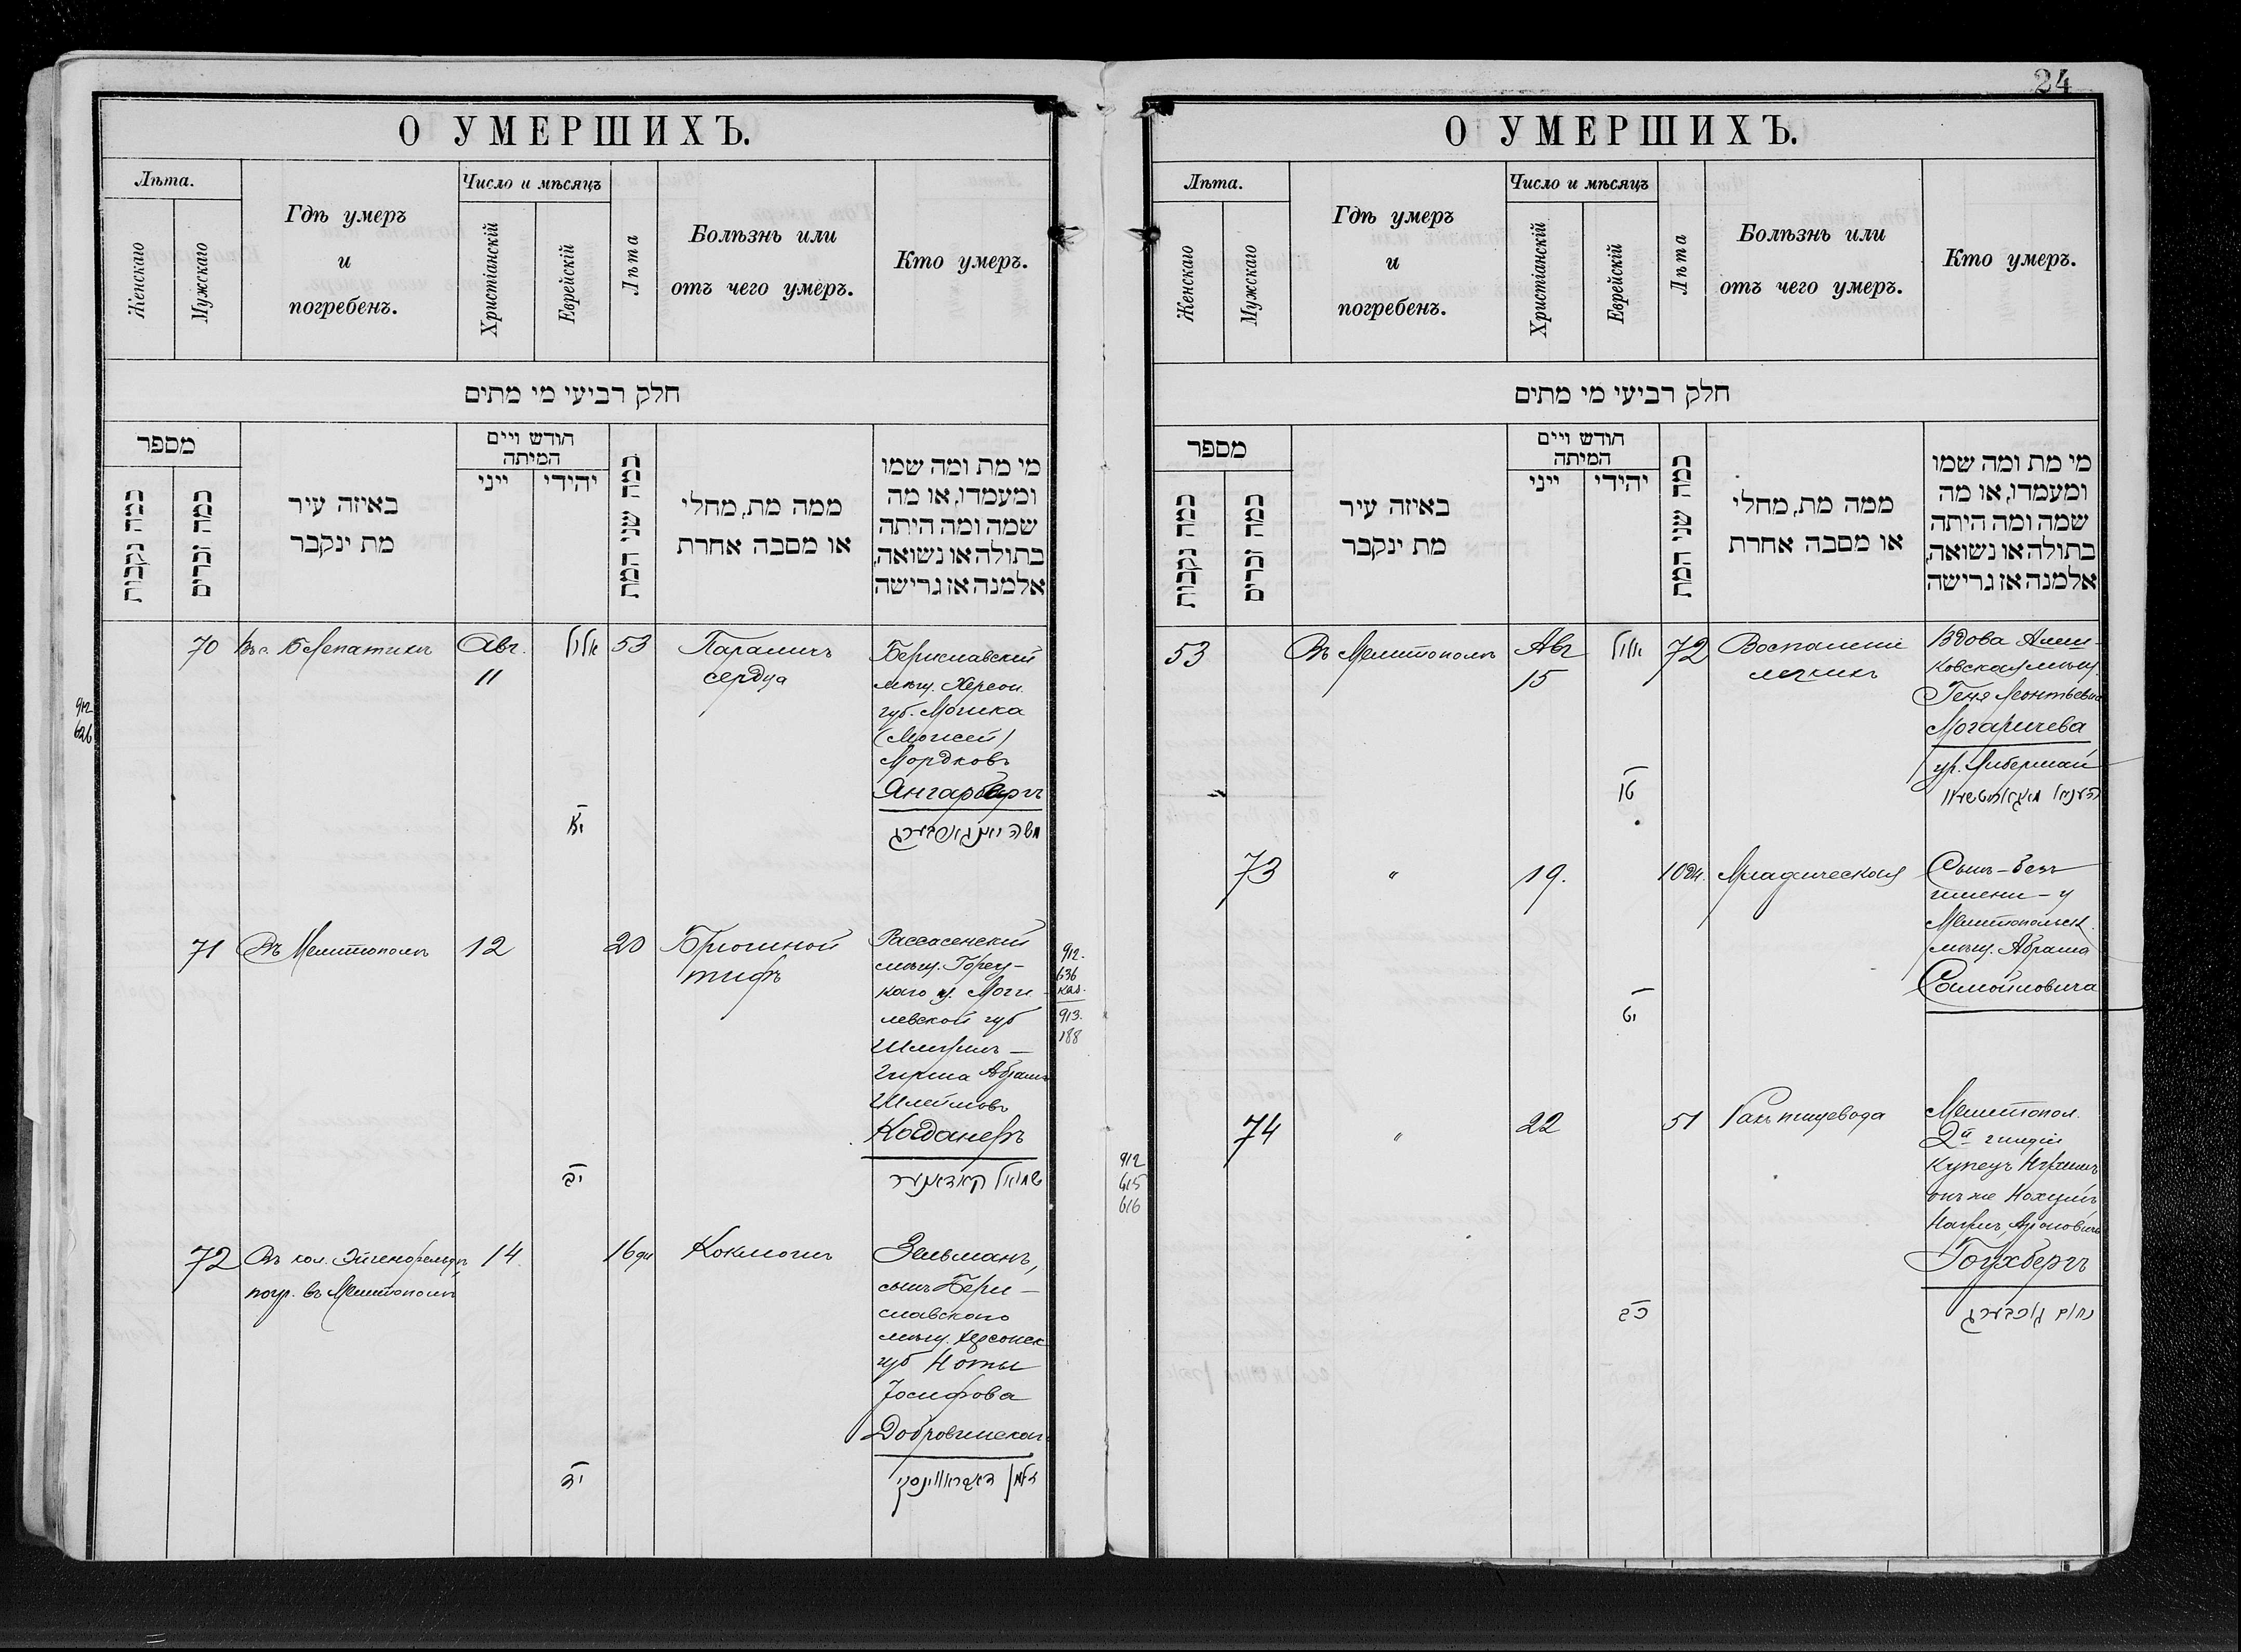 24
О УМЕРШИХЪ.
Лѣта.
Женскаго
Мужскаго
Гдѣ умеръ
и
погребенъ.
Число и мѣсяцъ
Христіанскій
Еврейскій
Лѣта
Болѣзнь или
отъ чего умеръ.
Кто умеръ.
חלק רביעי מי מתים
מספר
כמה נקבות
כמה זכרים
באיזה עיר
מת ינקבר
חודש ויים
המיתה
ייני
יהודי
כמה שני המת
ממה מת, מחלי
או מסבה אחרת
מי מת ומה שמו
ומעמדו, או מה
שמה ומה היתה
בתולה או נשואה,
אלמנה אז גרישה
912
626
70
Авг.
11
אלול
יא
53
Параличъ
сердца
Бериславскій
мѣщ. Херсон.
губ. Мошка
(Моисей)
Мордковъ
Янгарберъ
71
Въ Мелитополѣ
12
יב
20
Брюшной
тифъ
Рассасенскій
мѣщ. Горец-
каго у. Моги-
левской губ
Гирша Абрамъ
Шлеймовъ
Кабданеръ
שמואל קאבדאנער
72
Въ кол. Эйгенфельдѣ,
погр. въ Мелитополѣ
14.
יד
16 дн
Коклюшъ
Зельманъ,
сынъ Бери-
славскаго
мѣщ. Херсонск
губ Ноты
Іосифова
Добровинскаго
זלמן דאבראווינסקי
О УМЕРШИХЪ.
Лѣта.
Женскаго
Мужскаго
Гдѣ умеръ
и
погребенъ.
Число и мѣсяцъ
Христіанскій
Еврейскій
Лѣта
Болѣзнь или
отъ чего умеръ.
Кто умеръ.
חלק רביעי מי מתים
מספר
כמה נקבות
כמה זכרים
באיזה עיר
מת ינקבר
חודש ויים
המיתה
ייני
יהודי
כמה שני המת
ממה מת, מחלי
או מסבה אחרת
מי מת ומה שמו
ומעמדו, או מה
שמה ומה היתה
בתולה או נשואה,
אלמנה אז גרישה
912.
636
кав.
913.
188
53
Въ Мелитополѣ
Авг
15
אלול
טו
72
Воспаленіе
легкихъ
Вдова Алеш-
ковская мѣщ.
Геня Леонтьевна
Могаричева
ур. Либерман
73
"
19.
יט
10 дн.
Сынъ-безъ
имени-у
Мелитопольск.
мѣщ. Абрама
Самойловича
912
615
616
74
"
22
כב
51
Ракъ пищевода
Мелитопол.
2й гильдіи
купецъ
онъ же Нохумъ
Ароновичъ
Гохбергъ
נחום האכבערג